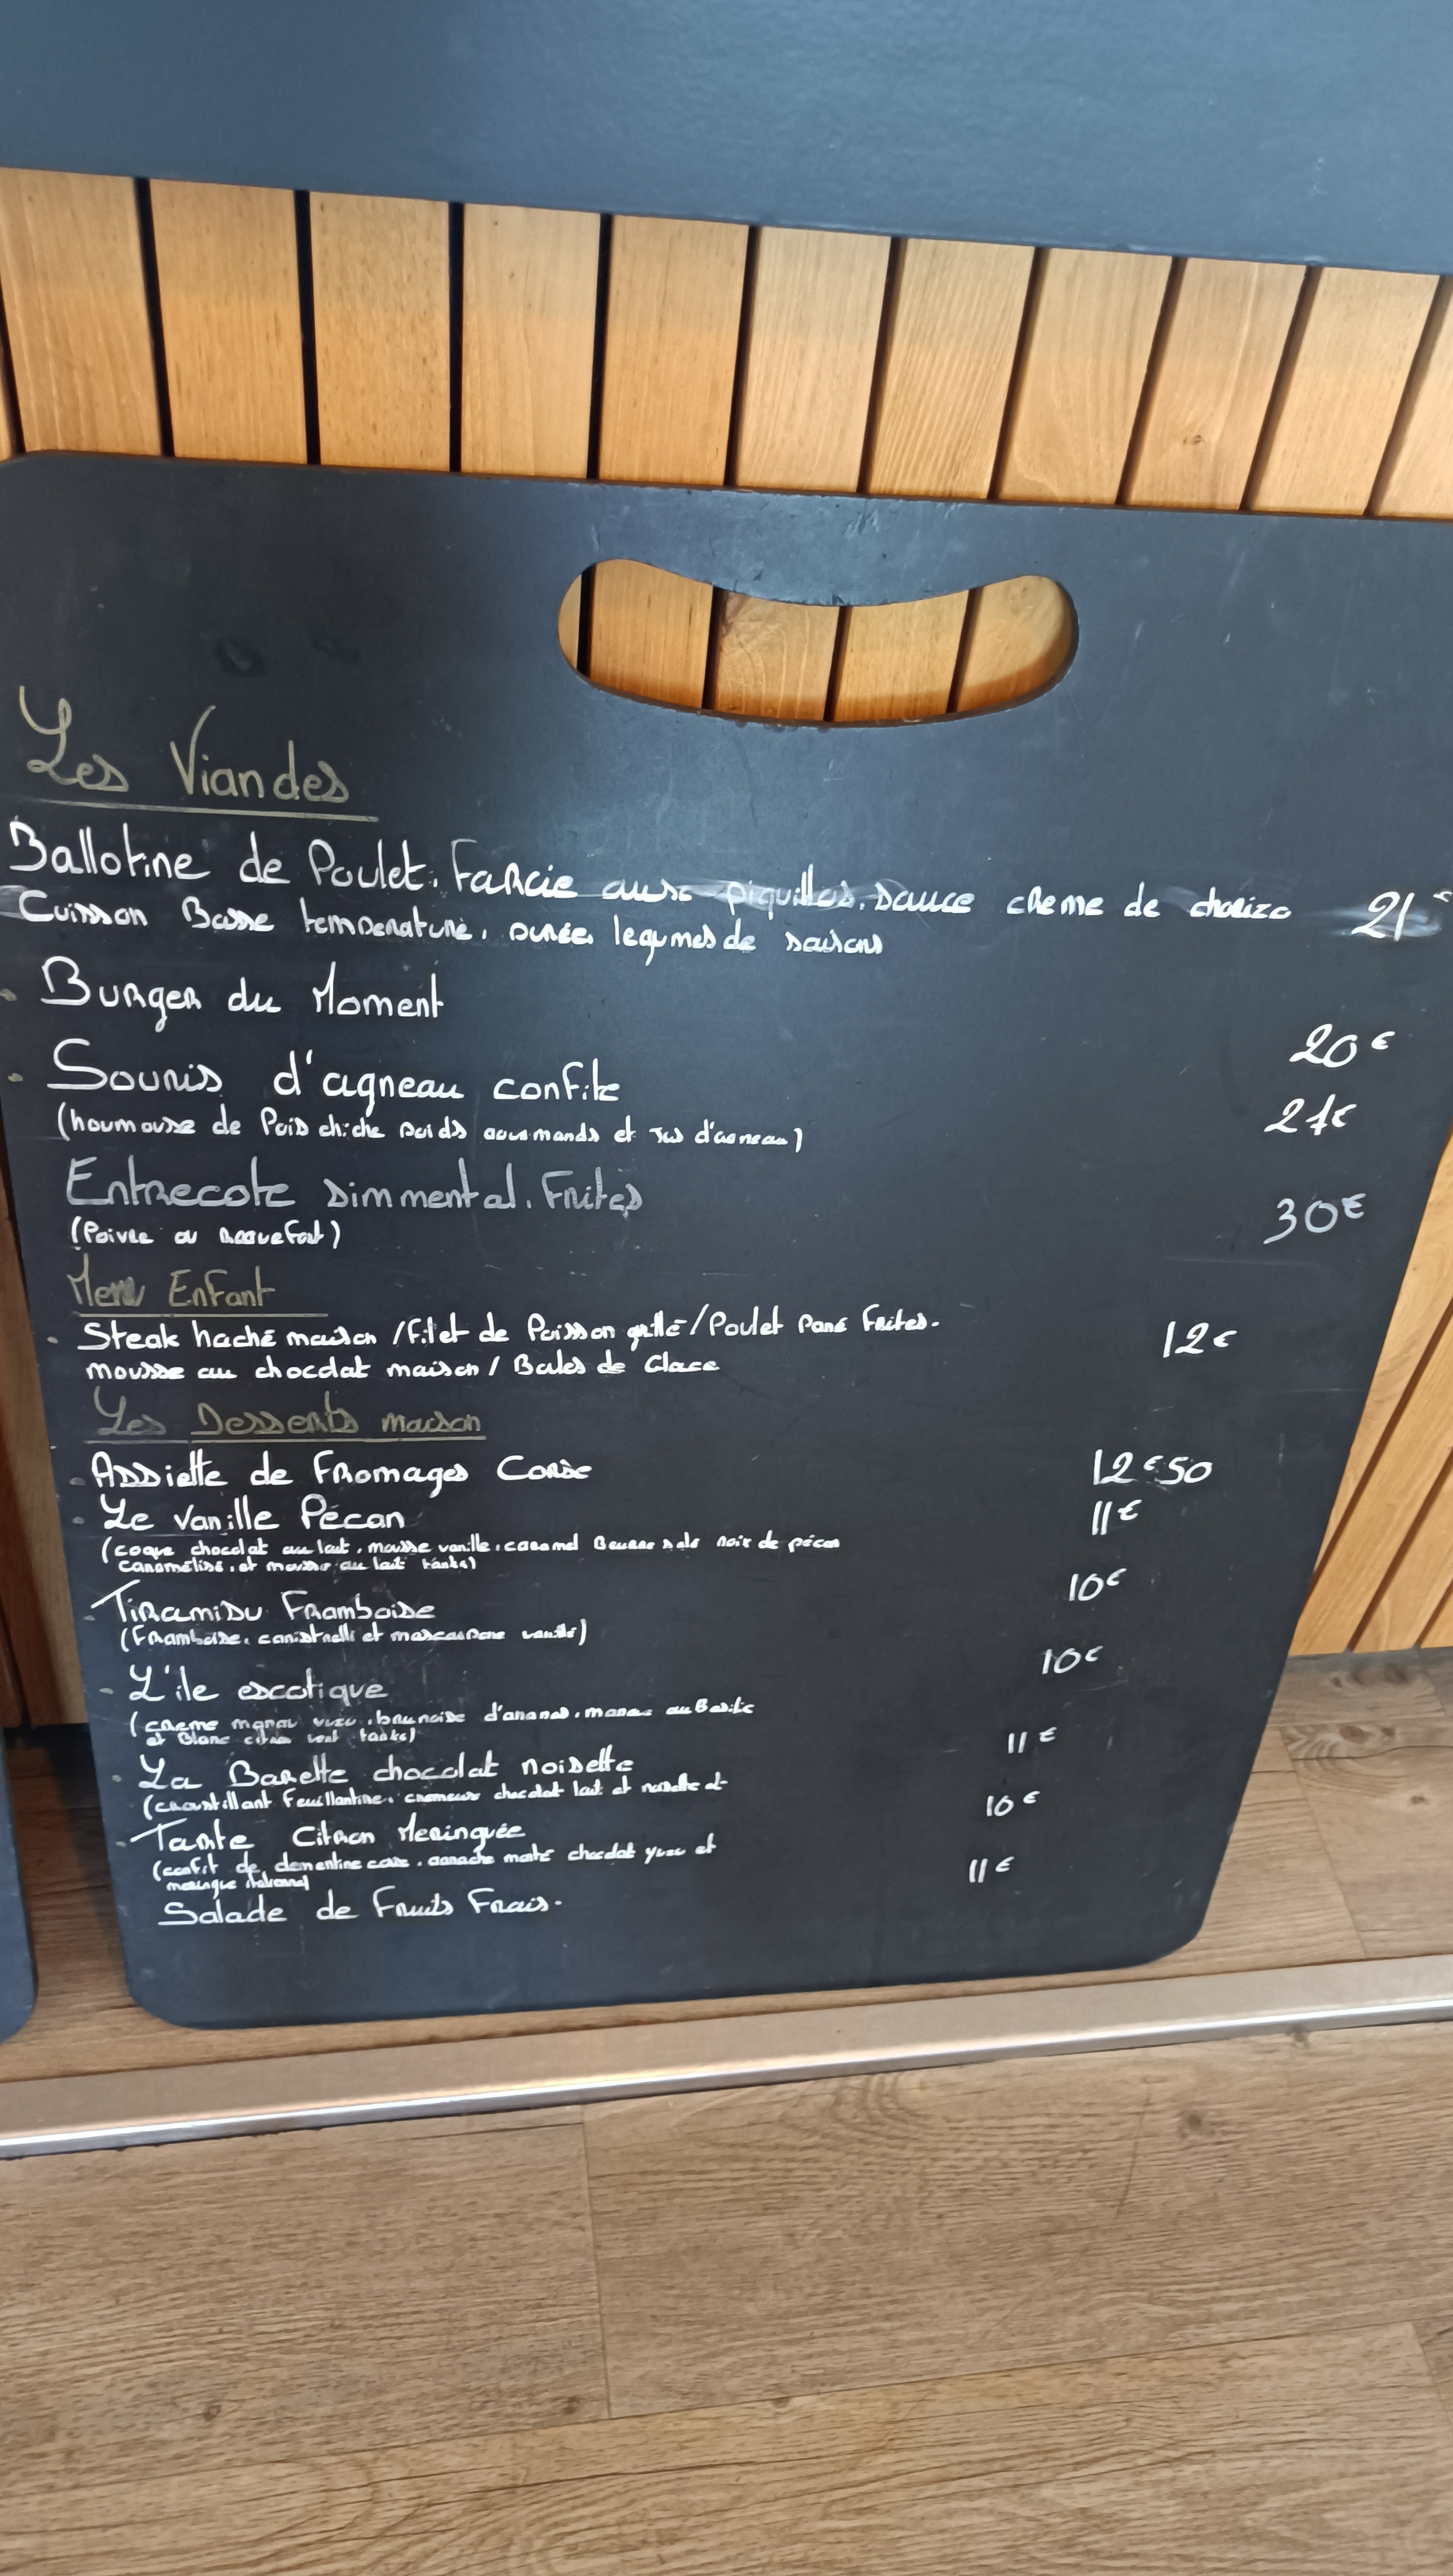 Les Viandes
Ballotine de Poulet. Farcie aux piquillos. sauce creme de chorizo 21€
Cuisson Basse temperature, purée, legumes de saisons
Burger du Moment 20€
Souris d'agneau confite 27€
(houmouse de Pois chiche poids gourmands et Jus d'agneau)
Entrecote simmental. Frites 30€
(Poivre ou roquefort)
Menu Enfant
Steak haché maison / filet de Poisson grillé / Poulet Pané Frites. 12€
mousse au chocolat maison / Boules de Glace
Les Desserts maison
Assiette de Fromages Corse 12€50
Le Vanille Pécan 11€
(coque chocolat au lait, mousse vanille, caramel Beurre salé noix de pécan
caramélisé, et mousse au lait)
Tiramisu Framboise 10€
(Framboise, canistrelli et mascarpone vanille)
L'ile exotique 10€
(creme yuzu, brunoise d'ananas, au Basilic
et Blanc citron vert)
La Barette chocolat noisette 11€
(croustillant Feuillantine, cremeux chocolat lait et noisette et
Tarte Citron Meringuée 10€
(confit de clementine corse, ganache monté chocolat yuzu et
meringue italienne)
Salade de Fruits Frais. 11€